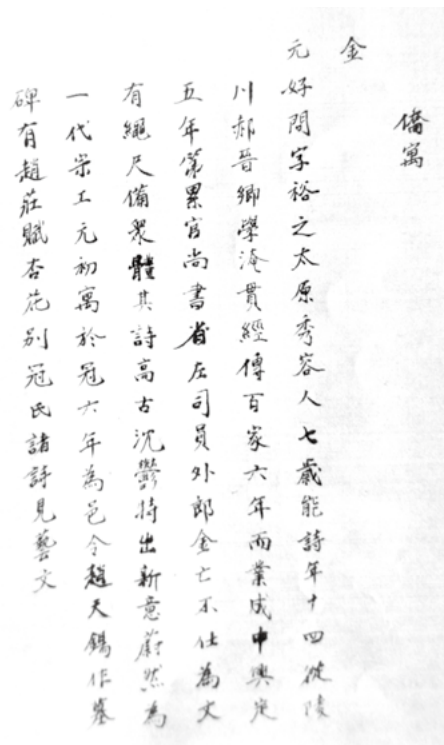 僑寓
金
元好問字裕之太原秀容人七歲能詩年十四從陵
川郝晉卿學淹貫經傳百家六年而業成中興定
五年第累官尚書省左司員外郎金亡不仕為文
有繩尺備衆體其詩高古沈鬱特出新意蔚然為
一代宗工元初寓於冠六年為邑令趙天錫作墓
碑有趙莊賦杏花別冠氏諸詩見藝文